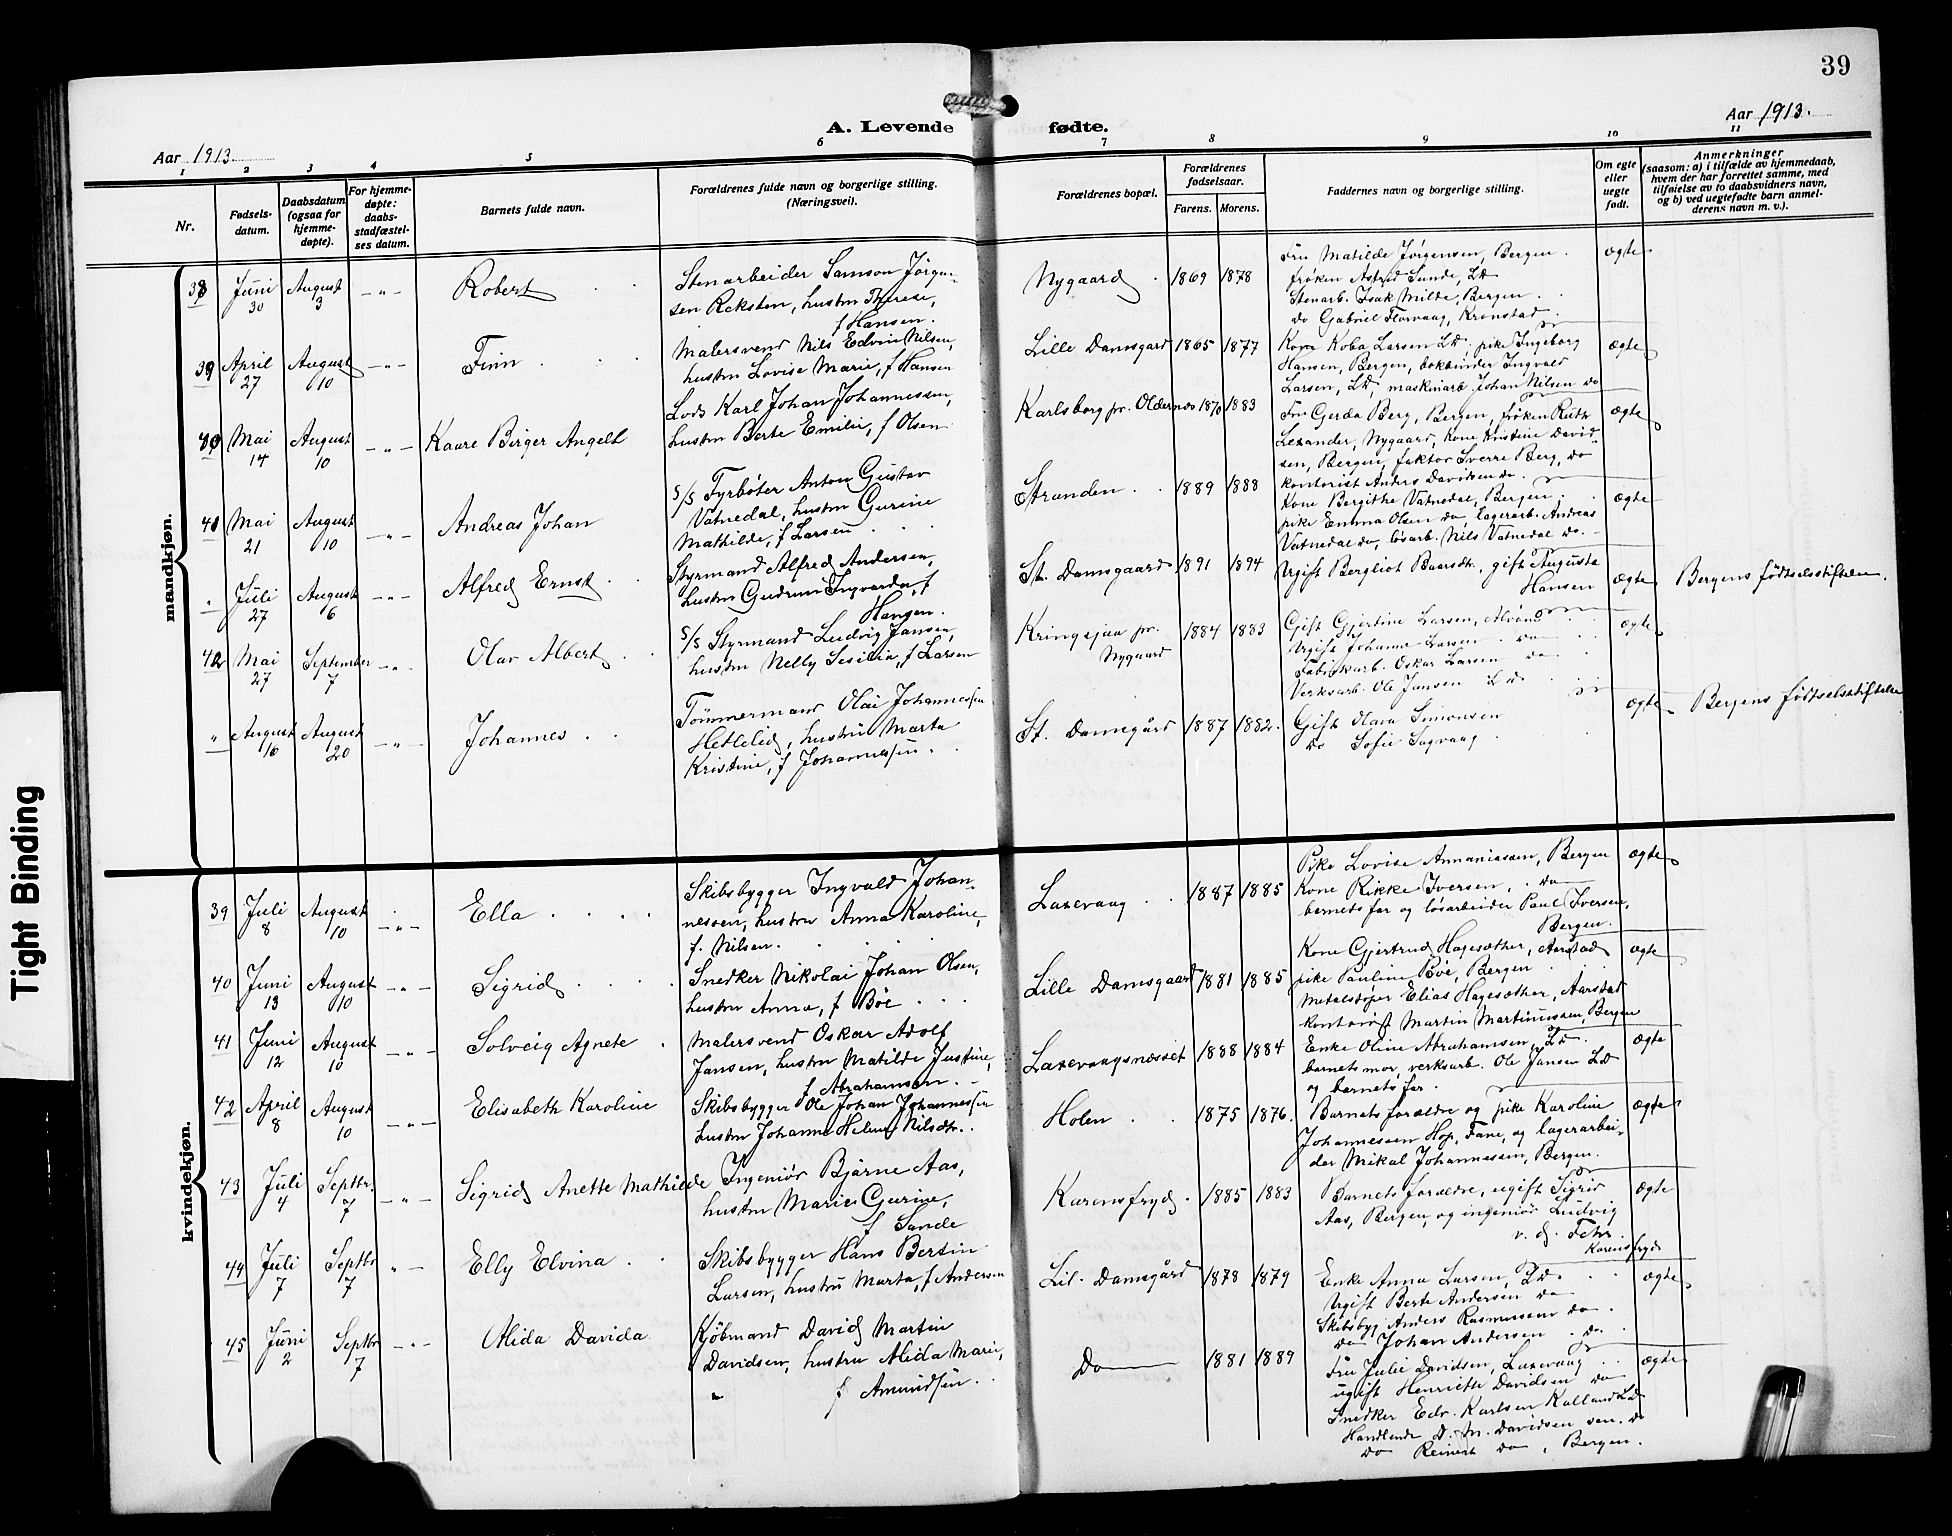 39
A. Levende fødte.
Aar 1913.
Aar 1913.
1 2 3 4 5 6 7 8 9 10 11
Nr.
Fødsels-
datum.
Daabsdatum
(ogsaa for
hjemme-
døpte).
For hjemme-
døpte:
daabs-
stadfæstel-
ses datum.
Barnets fulde navn.
Forældrenes fulde navn og borgerlige stilling.
(Næringsvei).
Forældrenes bopæl.
Forældrenes
fødselsaar.
Farens. Morens.
Faddernes navn og borgerlige stilling.
Om egte
eller
uegte
født.
Anmerkninger
(saasom: a) i tilfælde av hjemmedaab,
hvem der har forrettet samme, med
tilføielse av to daabsvidners navn,
og b) ved uegtefødte barn anmel-
derens navn m. v.).
mandkjøn.
38 Juni 30 August 3 -"- Robert
Stenarbeider Samson Jörgen-
sen Reksten, hustru Therese,
f Hansen.
Nygaard 1869 1878
Fru Matilde Jørgensen, Bergen.
frøken Astrid Sunde, LD
Stenarb. Isak Milde, Bergen
do Gabriel Florvaag, Kronstad
ægte
39 April 27 August 10 -"- Finn
Malersvend Nils Edvin Nilsen,
hustru Lovise Marie, f Hansen
Lille Damsgard 1865 1877
Kone Koba Larsen LD. pike Ingeborg
Hansen, Bergen, bokbinder Ingvald
Larsen, LD, maskinarb. Johan Nilsen do
ægte
40 Mai 14 August 10 -"- Kaare Birger Angell
Lods Karl Johan Johannessen,
hustru Berte Emilie, f Olsen
Karlsborg pr. Oldernes 1870 1883
Fru Gerda Berg, Bergen, frøken Ruth
Lexander, Nygaard, Kone Kristine David-
sen, Bergen, faktor Sverre Berg, do
kontorist Anders Davidsen do.
ægte
41 Mai 21 August 10 -"- Andreas Johan
S/S Fyrbøter Anton Gustav
Vatnedal, hustru Gurine
Mathilde, f Larsen
Stranden 1889 1888
Kone Bergithe Vatnedal, Bergen
pike Emma Olsen do, lagerarb. Andreas
Vatnedal do, løsarb. Nils Vatnedal do.
ægte
" Juli 27 August 6 -"- Alfred Ernst
Styrmand Alfred Andersen,
hustru Gudrun Ingvarda, f
Hansen.
St. Damsgaard 1891 1894
Ugift Bergliot Baarsdtr, gift Augusta
Hansen
ægte Bergens fødselsstiftelse.
42 Mai 27 September 7 -"- Olav Albert
S/S Styrmand Ludvig Jansen,
hustru Nelly Sesilia, f Larsen
Kringsjaa pr.
Nygaard
1884 1883
Gift Gjertine Larsen,
Ugift Johanne Larsen do
Fabrikarb. Oskar Larsen do
Verksarb. Ole Jansen LD
ægte
" August 16 August 20 -"- Johannes
Tømmermand Olai Johannessen
Hetlelid, hustru Marta
Kristine, f Johannessen.
St. Damsgård 1887 1882.
Gift Olava Simonsen
do Sofie Sagvaag
ægte. Bergens fødselsstiftelse
kvindekjøn.
39 Juli 8 August 10 -"- Ella
Skibsbygger Ingvald Johan-
nessen, hustru Anna Karoline,
f. Nilsen.
Laxevaag 1887 1885
Pike Lovise Annaniassen, Bergen
Kone Rikke Iversen, do
barnets far og løsarbeider Paul Iversen,
Bergen.
ægte
40 Juni 13 August 10 -"- Sigrid
Snedker Nikolai Johan Olsen,
hustru Anna, f Böe
Lille Damsgaard 1881 1885
Kone Gjertrud Hagesæther, Aarstad
pike Pauline Bøe, Bergen
Metalstøper Elias Hagesæther, Aarstad
kontorist Martin Martinussen, Bergen
ægte
41 Juni 12 August 10 -"- Solveig Agnete
Malersvend Oskar Adolf
Jansen, hustru Matilde Justine,
f Abrahamsen.
Laxevaagsnesset 1888 1884
Enke Oline Abrahamsen, LD.
barnets mor, verksarb. Ole Jansen LD
og barnets far.
ægte
42 April 8 August 10 -"- Elisabeth Karoline
Skibsbygger Ole Johan Johannessen
hustru Johanna Helene Nilsdtr.
Holen 1875 1876.
Barnets forældre og pike Karoline
Johannessen Hop, Fane, og lagerarbei-
der Mikal Johannessen, Bergen.
ægte
43 Juli 4 Septbr. 7 -"- Sigrid Anette Mathilde
Ingeniør Bjarne Aas,
hustru Marie Gurine,
f Sunde
Karensfryd. 1885 1883
Barnets forældre, ugift Sigrid
Aas, Bergen, og ingeniør Ludvig
v. d. Fehr.
Karensfryd
ægte
44 Juli 7 Septbr 7 "- Elly Elvina
Skibsbygger Hans Bertin
Larsen, hustru Marta, f Andersen
Lil. Damsgård 1878 1879
Enke Anna Larsen, LD.
Ugift Berte Andersen do
Skibsbyg Anders Rasmussen do.
do Johan Andersen do.
ægte
45 Juni 2 Septbr 7 -"- Alida Davida
Kjøbmand David Martin
Davidsen, hustru Alida Marie,
" f Amundsen
Do 1881 1889
Fru Julie Davidsen, Laxevaag
ugift Henriette Davidsen do
Snedker Edv. Karlsen Kalland LD
Handlende D. M. Davidsen sen. do
do Reinert do, Bergen.
ægte
Tight Binding